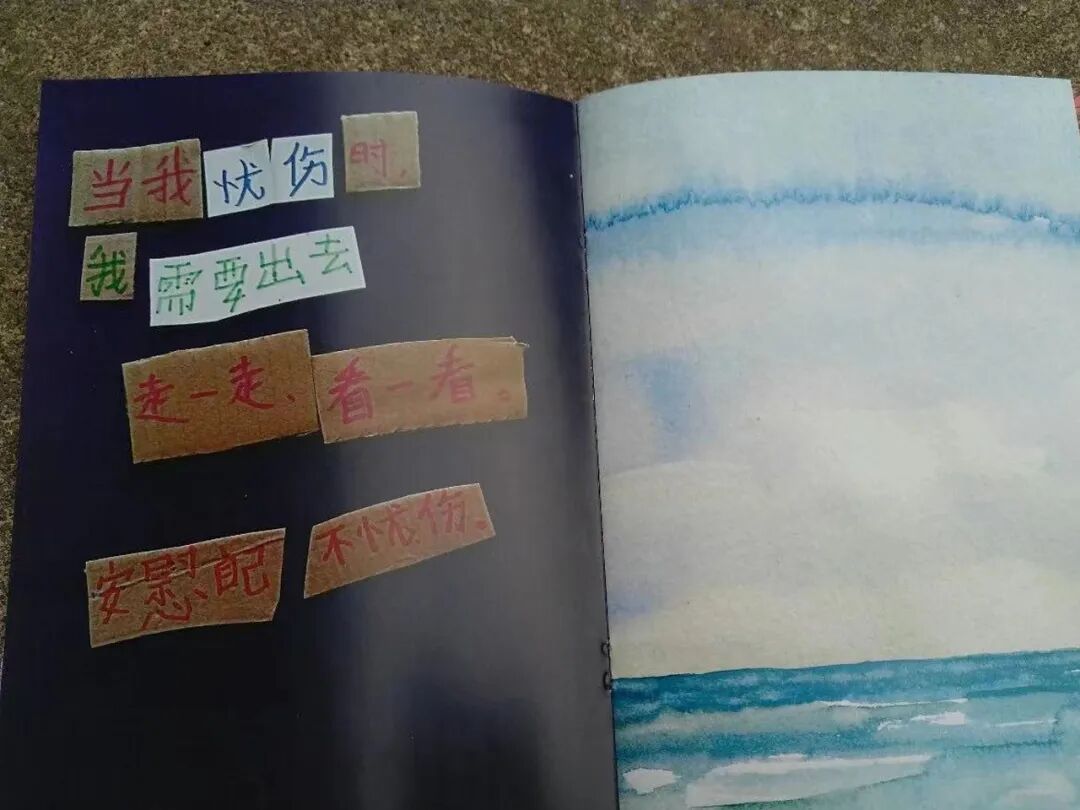 当我忧伤时,
我需要出去
走一走、看一看。
安慰自己不忧伤。